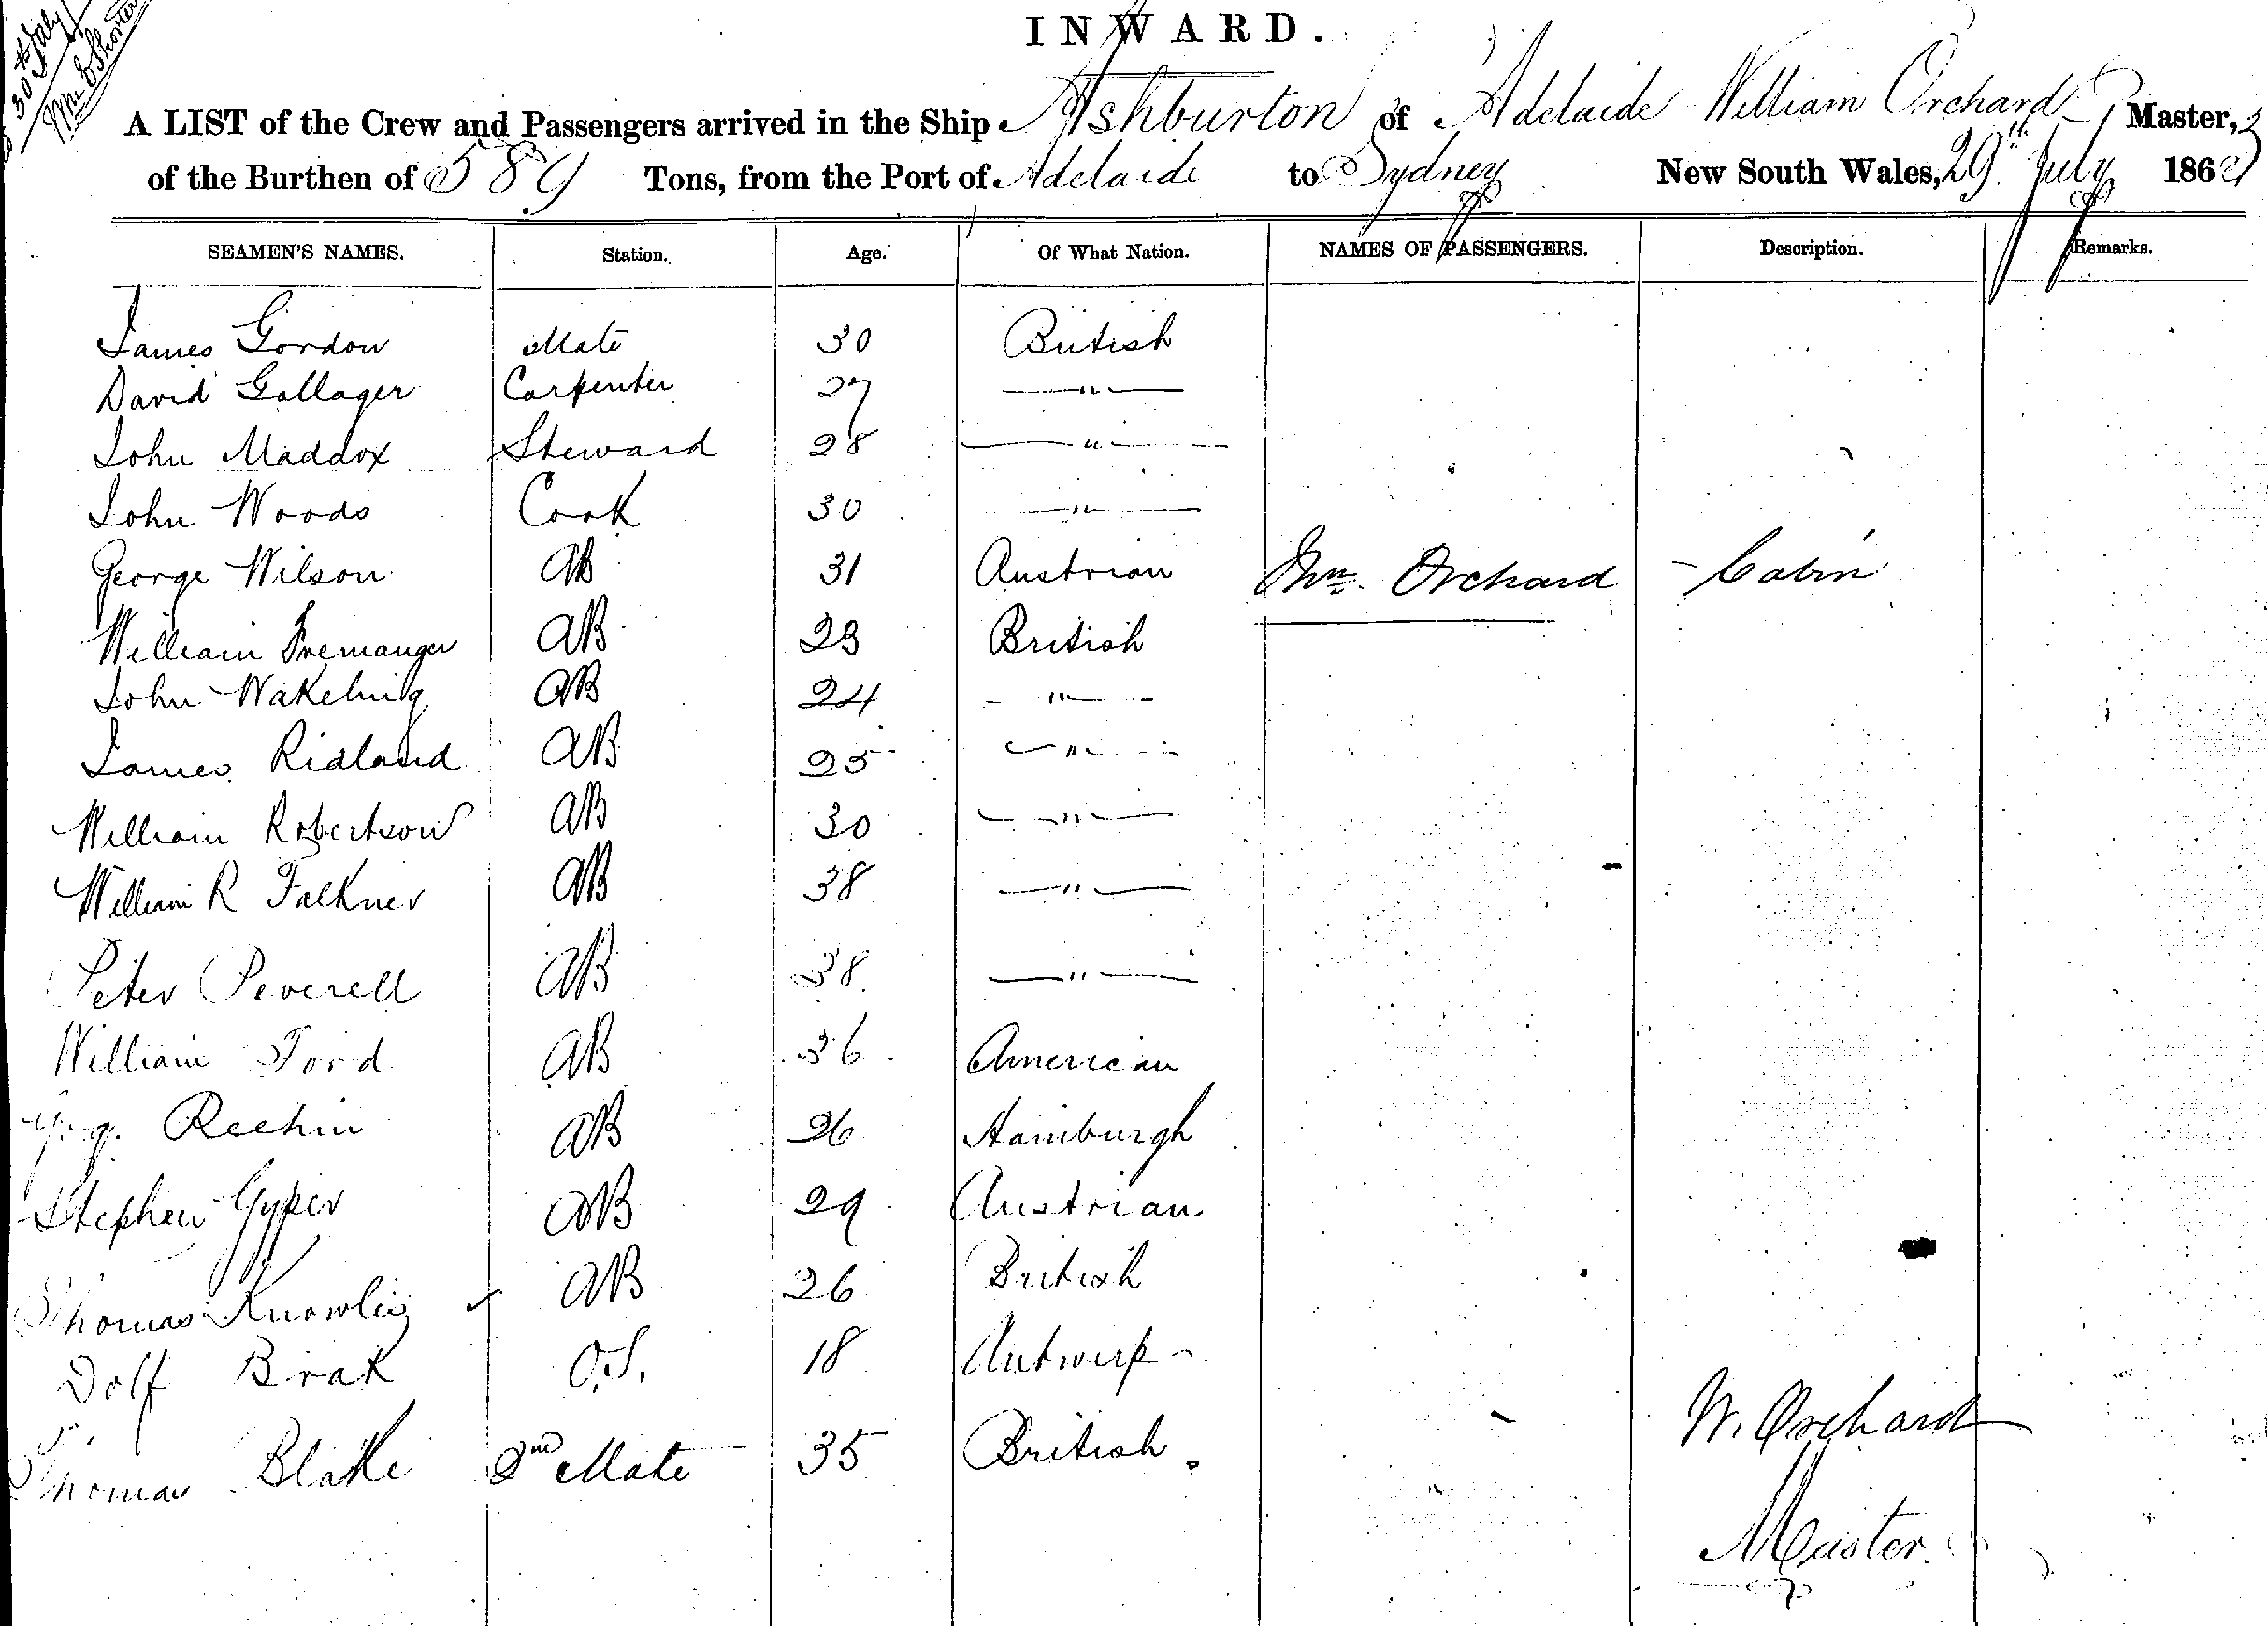 30th July
INWARD.
A LIST of the Crew and Passengers arrived in the Ship Ashburton of Adelaide William Orchard Master,
of the Burthen of 589 Tons, from the Port of Adelaide to Sydney New South Wales, 29th July 1863
SEAMEN'S NAMES. Station. Age. Of What Nation. NAMES OF PASSENGERS. Description. Remarks.
James Gordon Mate 30 British
David Gallager Carpenter 27 "
John Maddox Steward 28 "
John Woods Cook 30 "
George Wilson AB 31 Austrian Mrs. Orchard - Cabin
William AB 23 British
John Wakeling AB 24 "
James Ridland AB 25 "
William Robertson AB 30 "
William R Falkner AB 38 "
Peter Peverell AB 38 "
William Ford AB 36 American
Rechin AB 26 Hamburgh
Stephen Gyper AB 29 Austrian
Thomas Knowlis AB 26 British
Dolf Brak O.S. 18 Antwerp
Thomas Blake 2nd Mate 35 British.
W. Orchard
Master